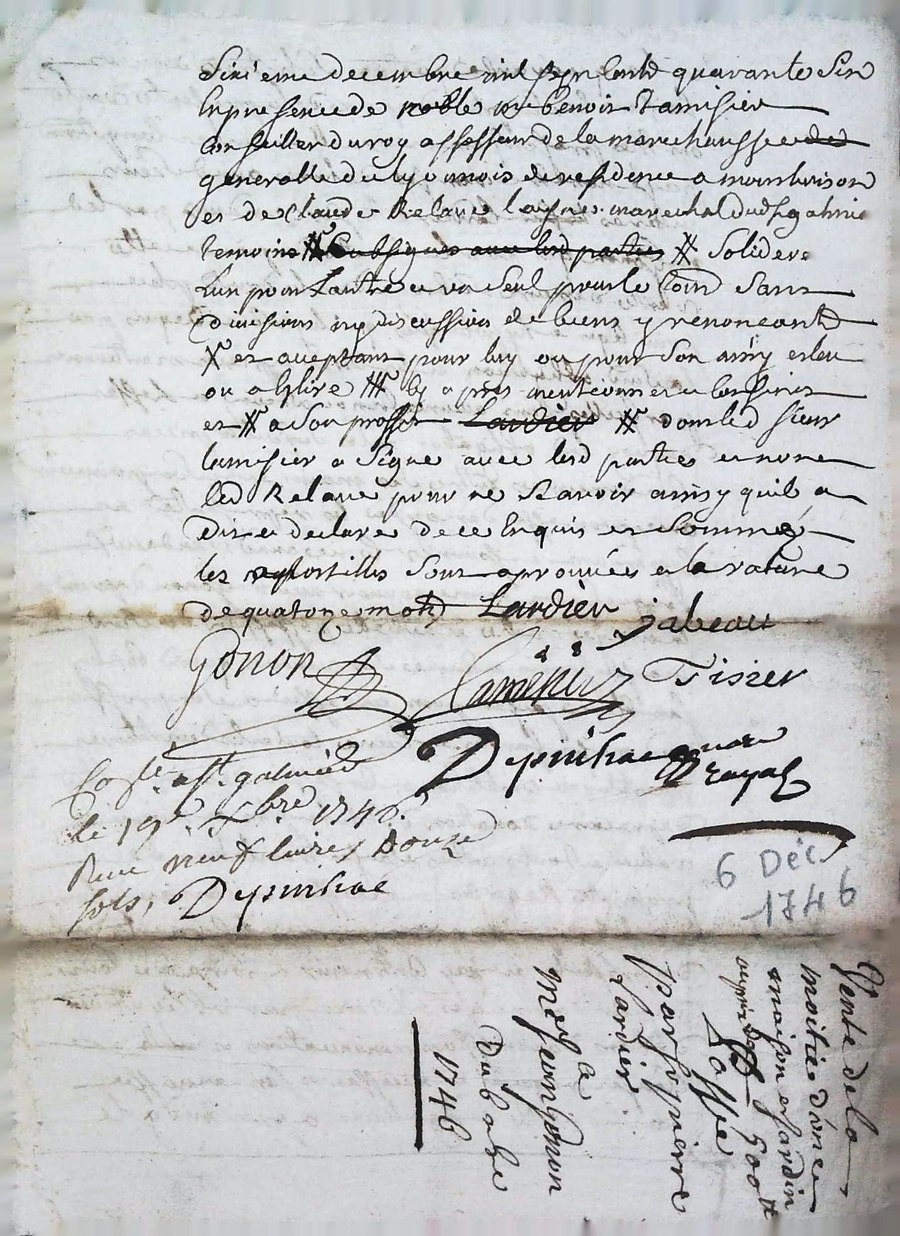 Sixieme decembre mil sept cents quarante six
En presence de noble mre benoit Tamisier
Conseiller du roy assesseur de la marechaussee des
generalle du lyonnois de residence a montbrison
et de Claude Relave layné marechal dud St galmier
temoins Soussignes avec lesd parties Solidere
Lun pour Lautre un seul pour le tout sans
division ny discussion de biens y renonceant
et aceptant pour luy ou pour son amy esleu
ou a Eslire cy apres mentionné
et a son proffit Lardier dont led sieur
tamisier a Signé avec lesd parties et non
led Relave pour ne scavoir ainsy quil a
Dit et declaré de ce Enquis et Sommé
les apostilles sont aprouvées et la rature
de quatorze mots Lardier
jabeau
gonon
Tamisier
Tisier
Depinhac
notaire
Royal
Coslé a St galmier
le 19e xbre 1746
Receu neuf livres Douze
sols, Depinhac
6 Déc.
1746
Vente de la
moitié d'une
maison et jardin
500 tt
par Sr pierre
Lardier
a
Me jean gonon
Du 6 xbre
1746